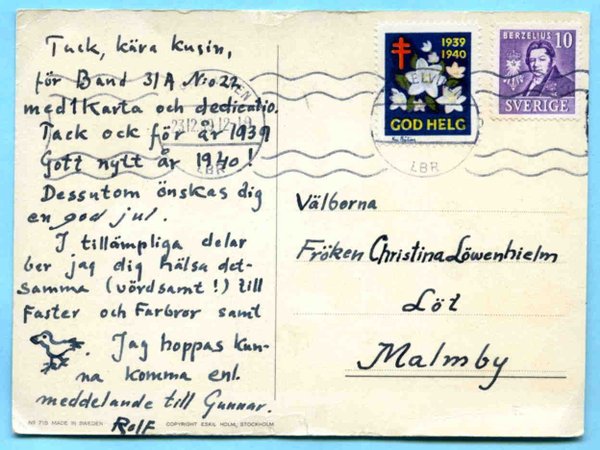 Tack, kära kusin,
för Band 31A No 22
med 1 Karta och dedicatio.
Tack ock för år 1939
Gott nytt år 1940!
Dessutom önskas dig
en god jul.
I tillämpliga delar
ber jag dig hälsa det-
samma (vördsamt!) till
Faster och Farbror samt
. Jag hoppas kun-
na komma enl.
meddelande till Gunnar.
Rolf
NR 715 MADE IN SWEDEN
COPYRIGHT ESKIL HOLM, STOCKHOLM
1939
1940
GOD HELG
BERZELIUS 10
SVERIGE
LBR
LBR
Välborna
Fröken Christina Löwenhielm
Löt
Malmby